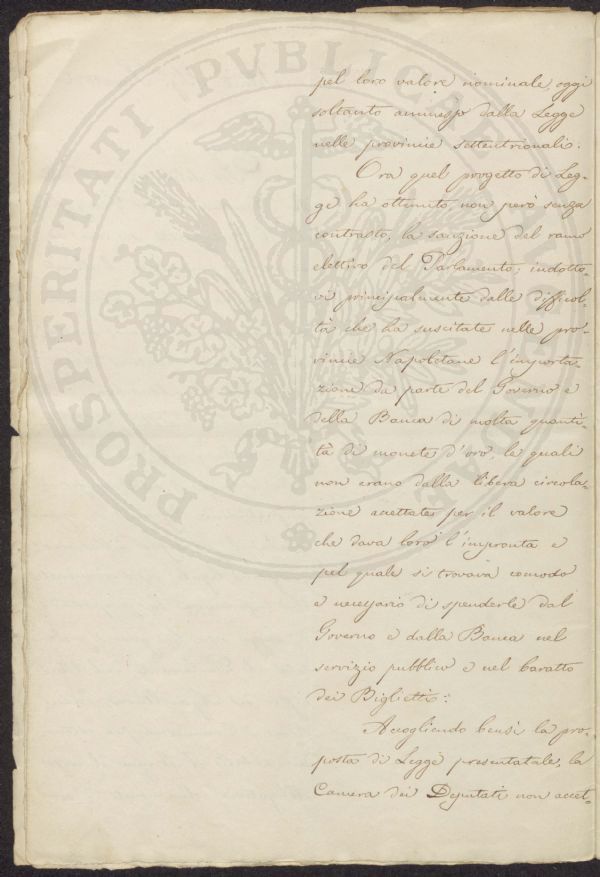 PROSPERITATI PVBLICAE
pel loro valore nominale, oggi
soltanto ammesso dalla Legge
nelle provincie settentrionali.
Ora quel progetto di Leg-
ge ha ottenuto, non però senza
contrasto, la sanzione del ramo
elettivo del Parlamento; indotto-
vi principalmente dalle difficol-
tà che ha suscitate nelle pro-
vincie Napoletane l'importa-
zione da parte del Governo e
della Banca di molta quanti-
tà di monete d'oro, le quali
non erano dalla libera circola-
zione accettate per il valore
che dava loro l'impronta e
pel quale si trovava comodo
e necessario di spenderle dal
Governo e dalla Banca nel
servizio pubblico e nel baratto
dei Biglietti.
Accogliendo bensì la pro-
posta di Legge presentatale, la
Camera dei Deputati non accet-